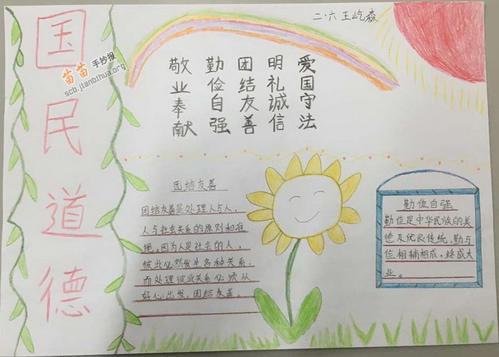 国民道德
苗苗手抄报
scb.jianbihua.org
二·六 王屹
爱国守法
明礼诚信
团结友善
勤俭自强
敬业奉献
团结友善
团结友善是处理人与人、
人与社会关系的准则和
因为人是社会的人，
彼此必然发生各种关系，
而处理彼此关系必须从
好心出发，团结友善。
勤俭自强
勤俭是中华民族的美
德及优良传统，勤与
俭相辅相成，终成大
业。